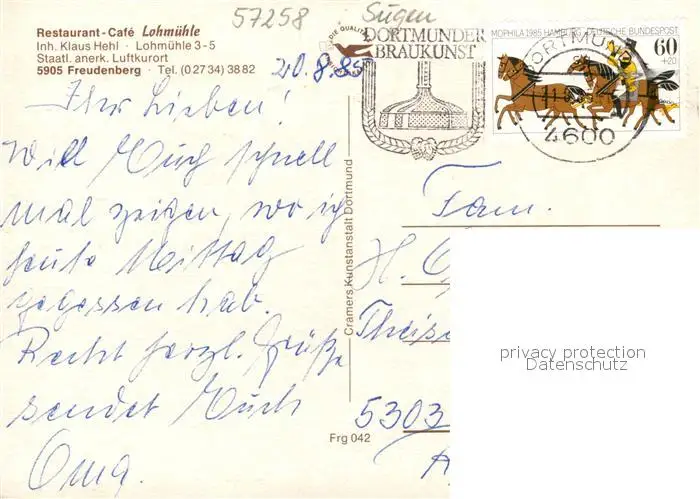 57258
Restaurant-Café Lohmühle
Inh. Klaus Hehl · Lohmühle 3-5
Staatl. anerk. Luftkurort
5905 Freudenberg · Tel. (02734) 3882
20.8.85
DORTMUNDER
BRAUKUNST
MOPHILA 1985 HAMBURG DEUTSCHE BUNDESPOST
60
+20
DORTMUND
4600
Ihr Lieben!
Will Euch schnell
mal zeigen, wo ich
heute Mittag
gegessen hab.
Recht herzl. Grüße
sendet Euch
Oma.
Cramers Kunstanstalt Dortmund
Frg 042
Fam.
H.
5303
privacy protection
Datenschutz